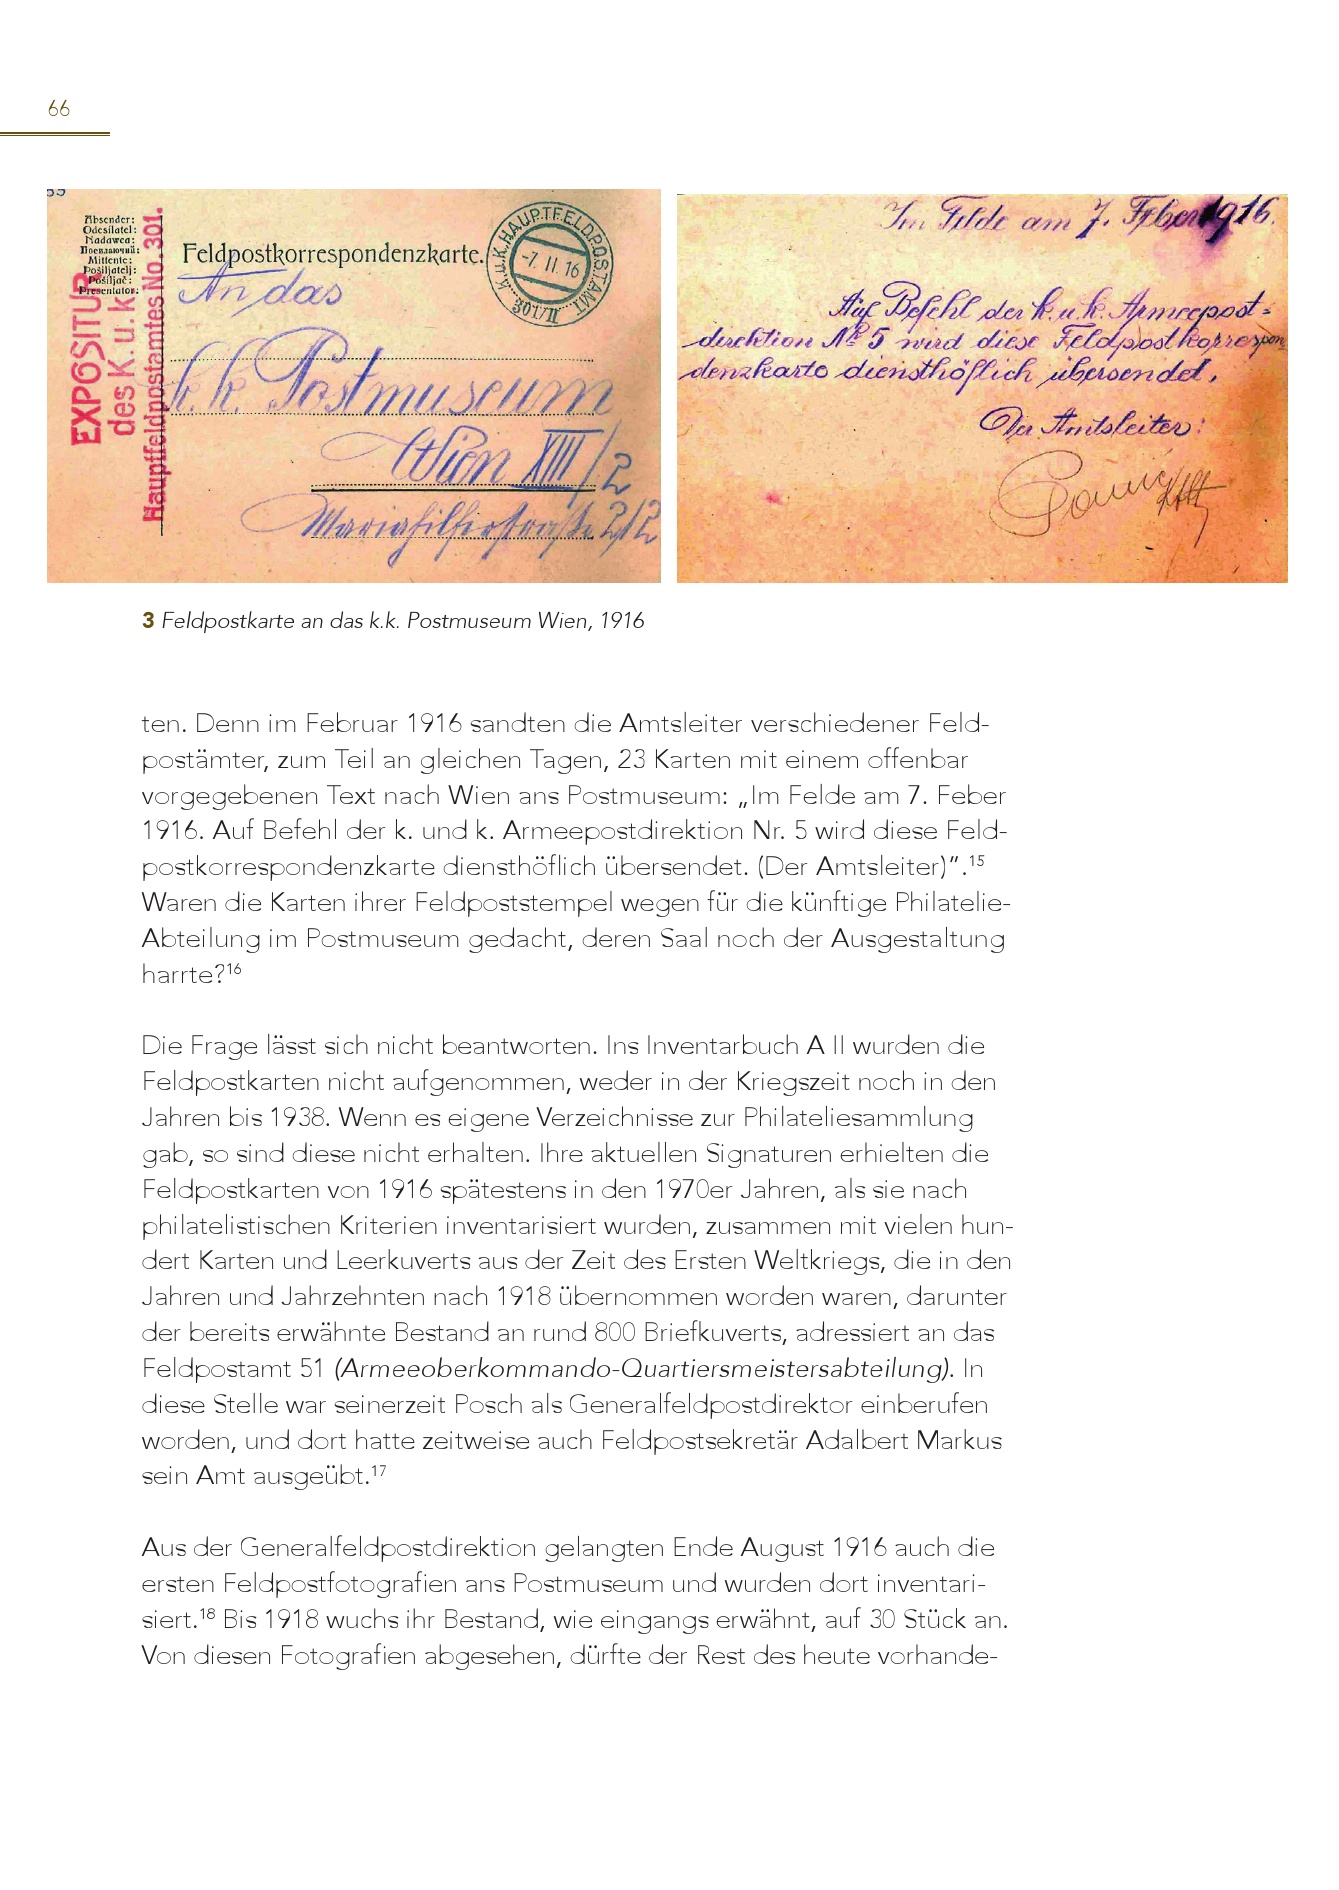 66
39
Absender:
Odesílatel:
Nadawca:
Mittente:
Pošiljatelj:
Pošiljač:
Presentator:
EXPOSITUR
des K. u. k.
Hauptfeldpostamtes No. 301.
Feldpostkorrespondenzkarte.
K. u. K. HAUPTFELDPOSTAMT
-7. II. 16
301/II
An das
k. k. Postmuseum
Wien XIII/2
Mariahilferstraße 212
Im Felde am 7. Feber 1916.
Auf Befehl der k. u. k. Armeepost-
direktion № 5 wird diese Feldpostkorrespon
denzkarte diensthöflich übersendet.
Der Amtsleiter:
3 Feldpostkarte an das k.k. Postmuseum Wien, 1916
ten. Denn im Februar 1916 sandten die Amtsleiter verschiedener Feld-
postämter, zum Teil an gleichen Tagen, 23 Karten mit einem offenbar
vorgegebenen Text nach Wien ans Postmuseum: „Im Felde am 7. Feber
1916. Auf Befehl der k. und k. Armeepostdirektion Nr. 5 wird diese Feld-
postkorrespondenzkarte diensthöflich übersendet. (Der Amtsleiter)”.15
Waren die Karten ihrer Feldpoststempel wegen für die künftige Philatelie-
Abteilung im Postmuseum gedacht, deren Saal noch der Ausgestaltung
harrte?16
Die Frage lässt sich nicht beantworten. Ins Inventarbuch A II wurden die
Feldpostkarten nicht aufgenommen, weder in der Kriegszeit noch in den
Jahren bis 1938. Wenn es eigene Verzeichnisse zur Philateliesammlung
gab, so sind diese nicht erhalten. Ihre aktuellen Signaturen erhielten die
Feldpostkarten von 1916 spätestens in den 1970er Jahren, als sie nach
philatelistischen Kriterien inventarisiert wurden, zusammen mit vielen hun-
dert Karten und Leerkuverts aus der Zeit des Ersten Weltkriegs, die in den
Jahren und Jahrzehnten nach 1918 übernommen worden waren, darunter
der bereits erwähnte Bestand an rund 800 Briefkuverts, adressiert an das
Feldpostamt 51 (Armeeoberkommando-Quartiersmeistersabteilung). In
diese Stelle war seinerzeit Posch als Generalfeldpostdirektor einberufen
worden, und dort hatte zeitweise auch Feldpostsekretär Adalbert Markus
sein Amt ausgeübt.17
Aus der Generalfeldpostdirektion gelangten Ende August 1916 auch die
ersten Feldpostfotografien ans Postmuseum und wurden dort inventari-
siert.18 Bis 1918 wuchs ihr Bestand, wie eingangs erwähnt, auf 30 Stück an.
Von diesen Fotografien abgesehen, dürfte der Rest des heute vorhande-